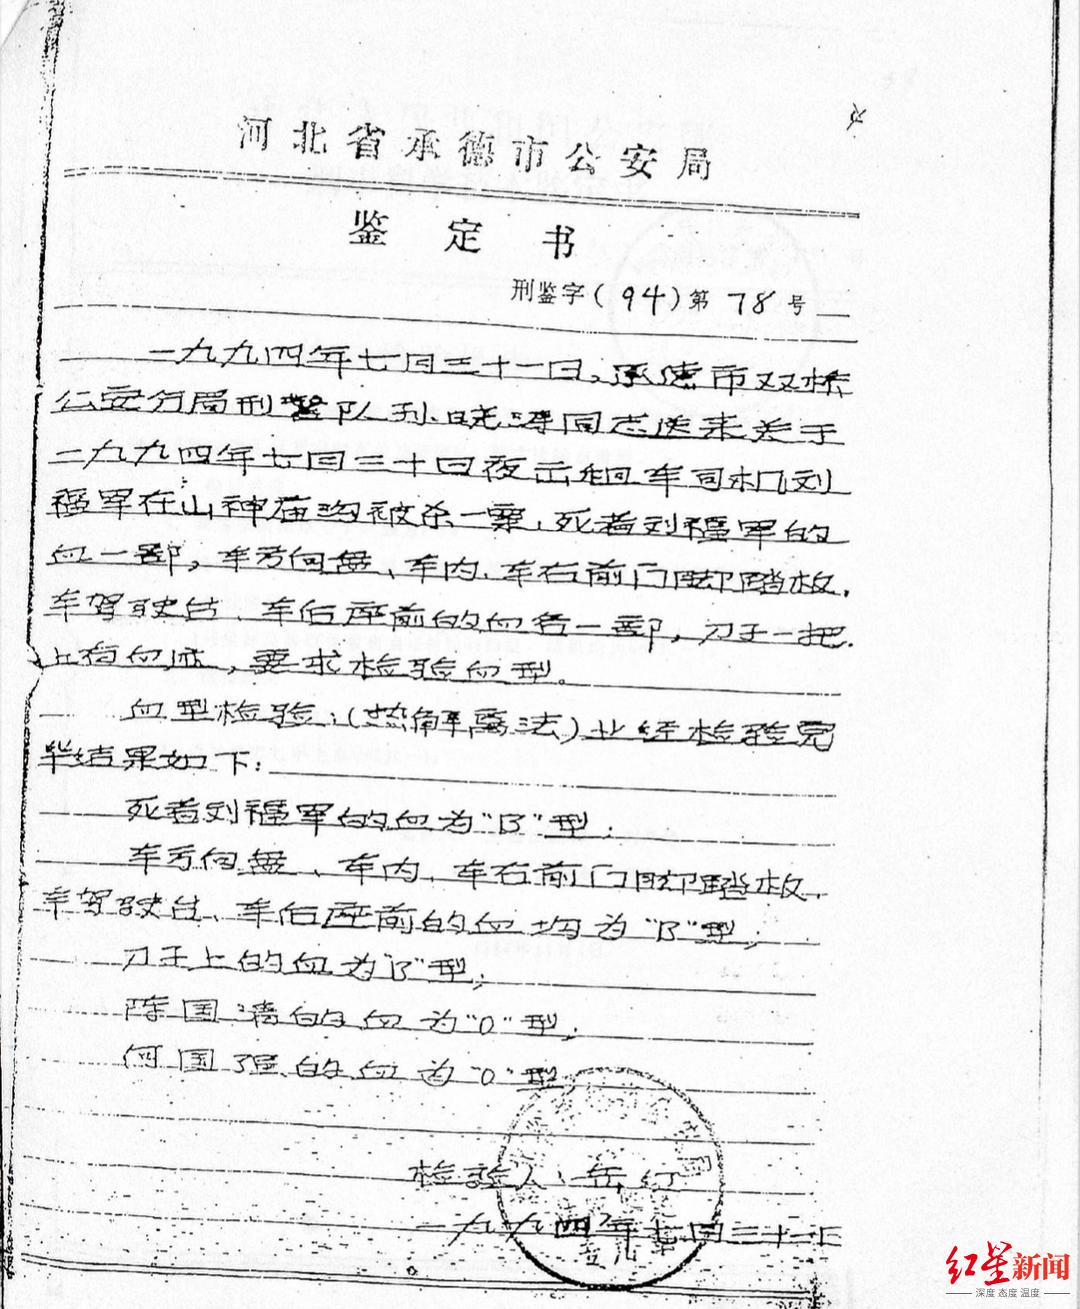 河北省承德市公安局
鉴定书
刑鉴字(94)第78号
一九九四年七月三十一日，承德市双桥
公安分局刑警队孙晓涛同志送来关于
一九九四年七月三十日夜出租车司机刘
福军在山神庙沟被杀一案，死者刘福军的
血一部，车方向盘、车内、车右前门脚踏板、
车驾驶台、车后座前的血各一部，刀子一把、
上有血迹，要求检验血型。
血型检验：(热解离法)业经检验完
毕结果如下：
死者刘福军的血为"B"型；
车方向盘、车内、车右前门脚踏板、
车驾驶台、车后座前的血均为"B"型；
刀子上的血为"B"型；
陈国清的血为"O"型；
何国强的血为"O"型；
检验人：岳红
一九九四年七月三十一日
红星新闻
深度 态度 温度